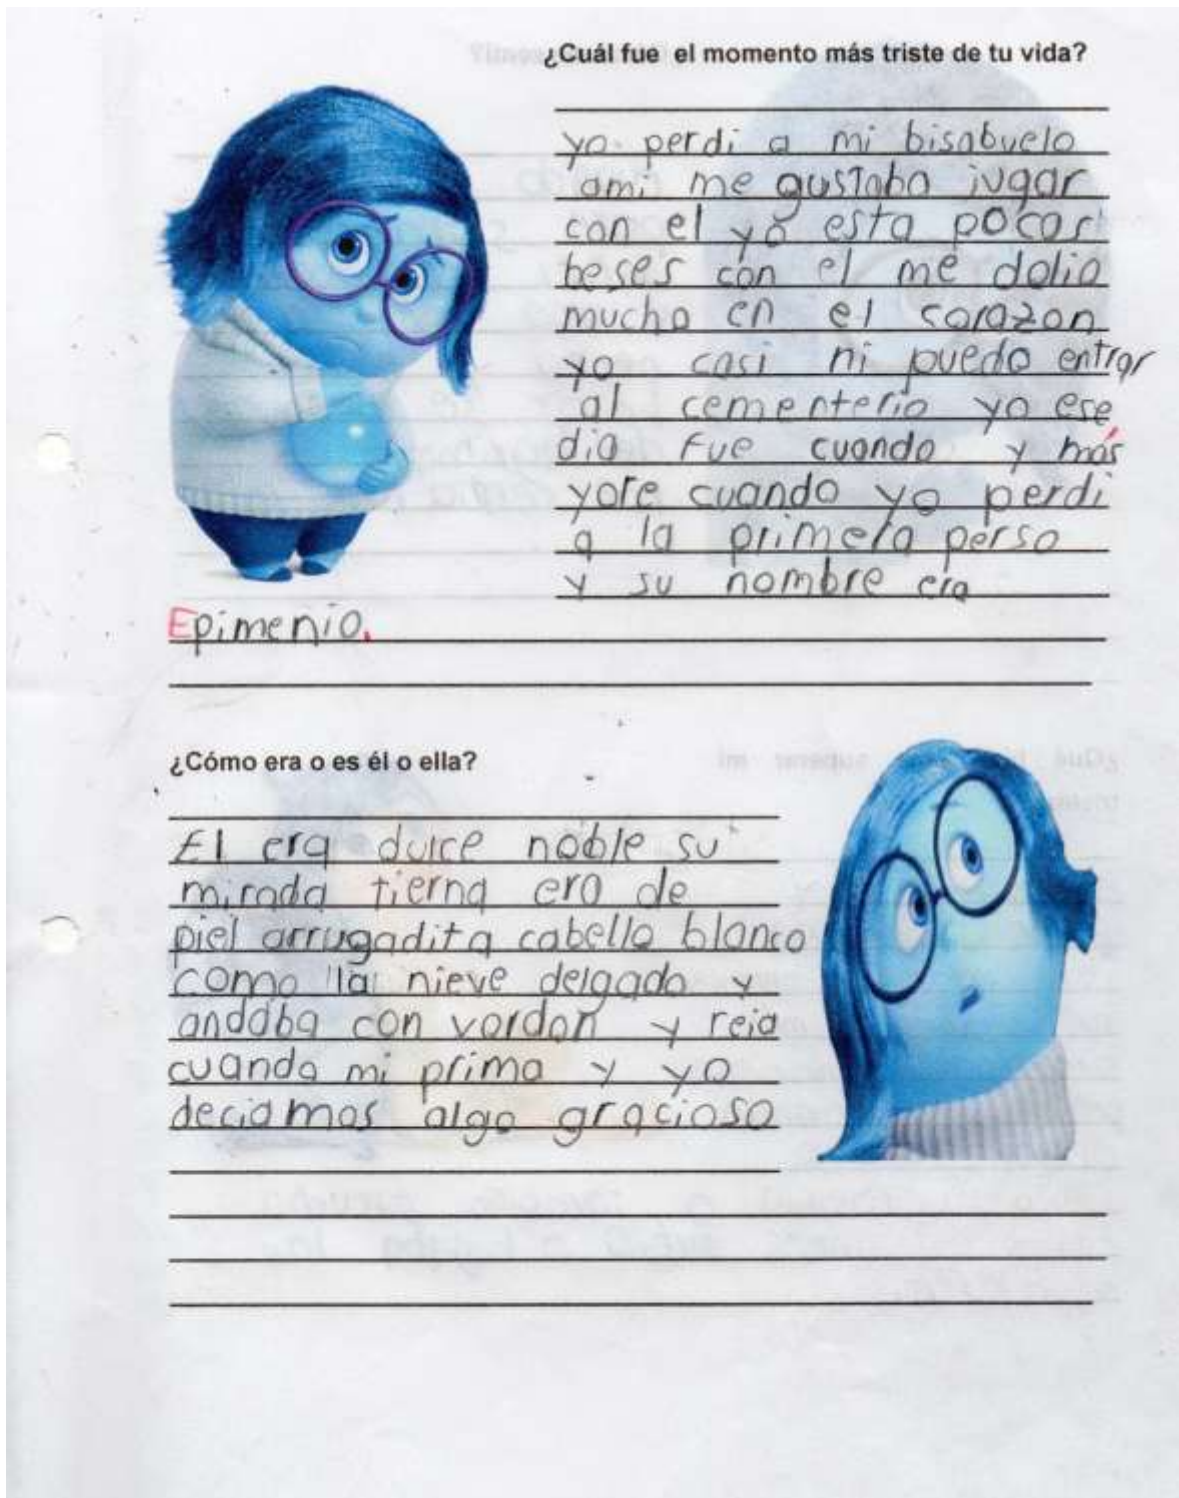 ¿Cuál fue el momento más triste de tu vida?
yo perdi a mi bisabuelo
ami me gustaba jugar
con el yo esta pocas
beses con el me dolio
mucho en el corazon
yo casi ni puedo entrar
al cementerio yo ese
dia fue cuando y más
yore cuando yo perdi
a la primera perso
y su nombre era
Epimenio.
¿Cómo era o es él o ella?
El era dulce noble su
mirada tierna era de
piel arrugadita cabello blanco
como la nieve delgado y
andaba con vordon y reia
cuando mi prima y yo
deciamos algo gracioso